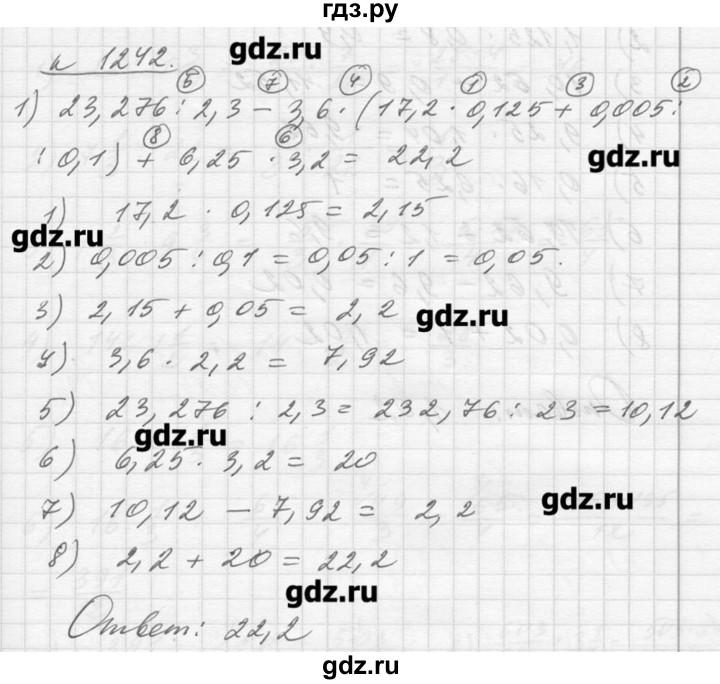 гдз.ру
gdz.ru
н 1242.
5 7 4 1 3 2
1) 23,276 : 2,3 - 3,6 · (17,2 · 0,125 + 0,005 :
8 6
: 0,1) + 6,25 · 3,2 = 22,2
gdz.ru
1) 17,2 · 0,125 = 2,15
gdz.ru
2) 0,005 : 0,1 = 0,05 : 1 = 0,05.
3) 2,15 + 0,05 = 2,2
gdz.ru
4) 3,6 · 2,2 = 7,92
5) 23,276 : 2,3 = 232,76 : 23 = 10,12
gdz.ru
6) 6,25 · 3,2 = 20
7) 10,12 - 7,92 = 2,2
gdz.ru
8) 2,2 + 20 = 22,2
gdz.ru
Ответ: 22,2
gdz.ru